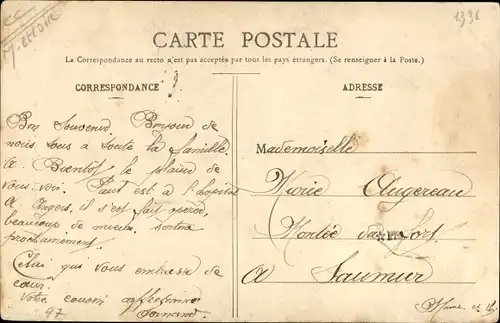 M-et-Loire
1336
CARTE POSTALE
La Correspondance au recto n'est pas acceptée par tous les pays étrangers. (Se renseigner à la Poste.)
CORRESPONDANCE
ADRESSE
Bon Souvenir. Bonjour de
nous tous à toute la famille.
A Bientôt, le plaisir de
vous voir. Paul est à l'hopital
à Angers, il s'est fait opérer,
beaucoup de mieux, sortira
prochainement.
Celui qui vous embrasse de
cœur.
Votre cousin affectionné
Fernand
97
Mademoiselle
Marie Augereau
Montée du Fort
à Saumur